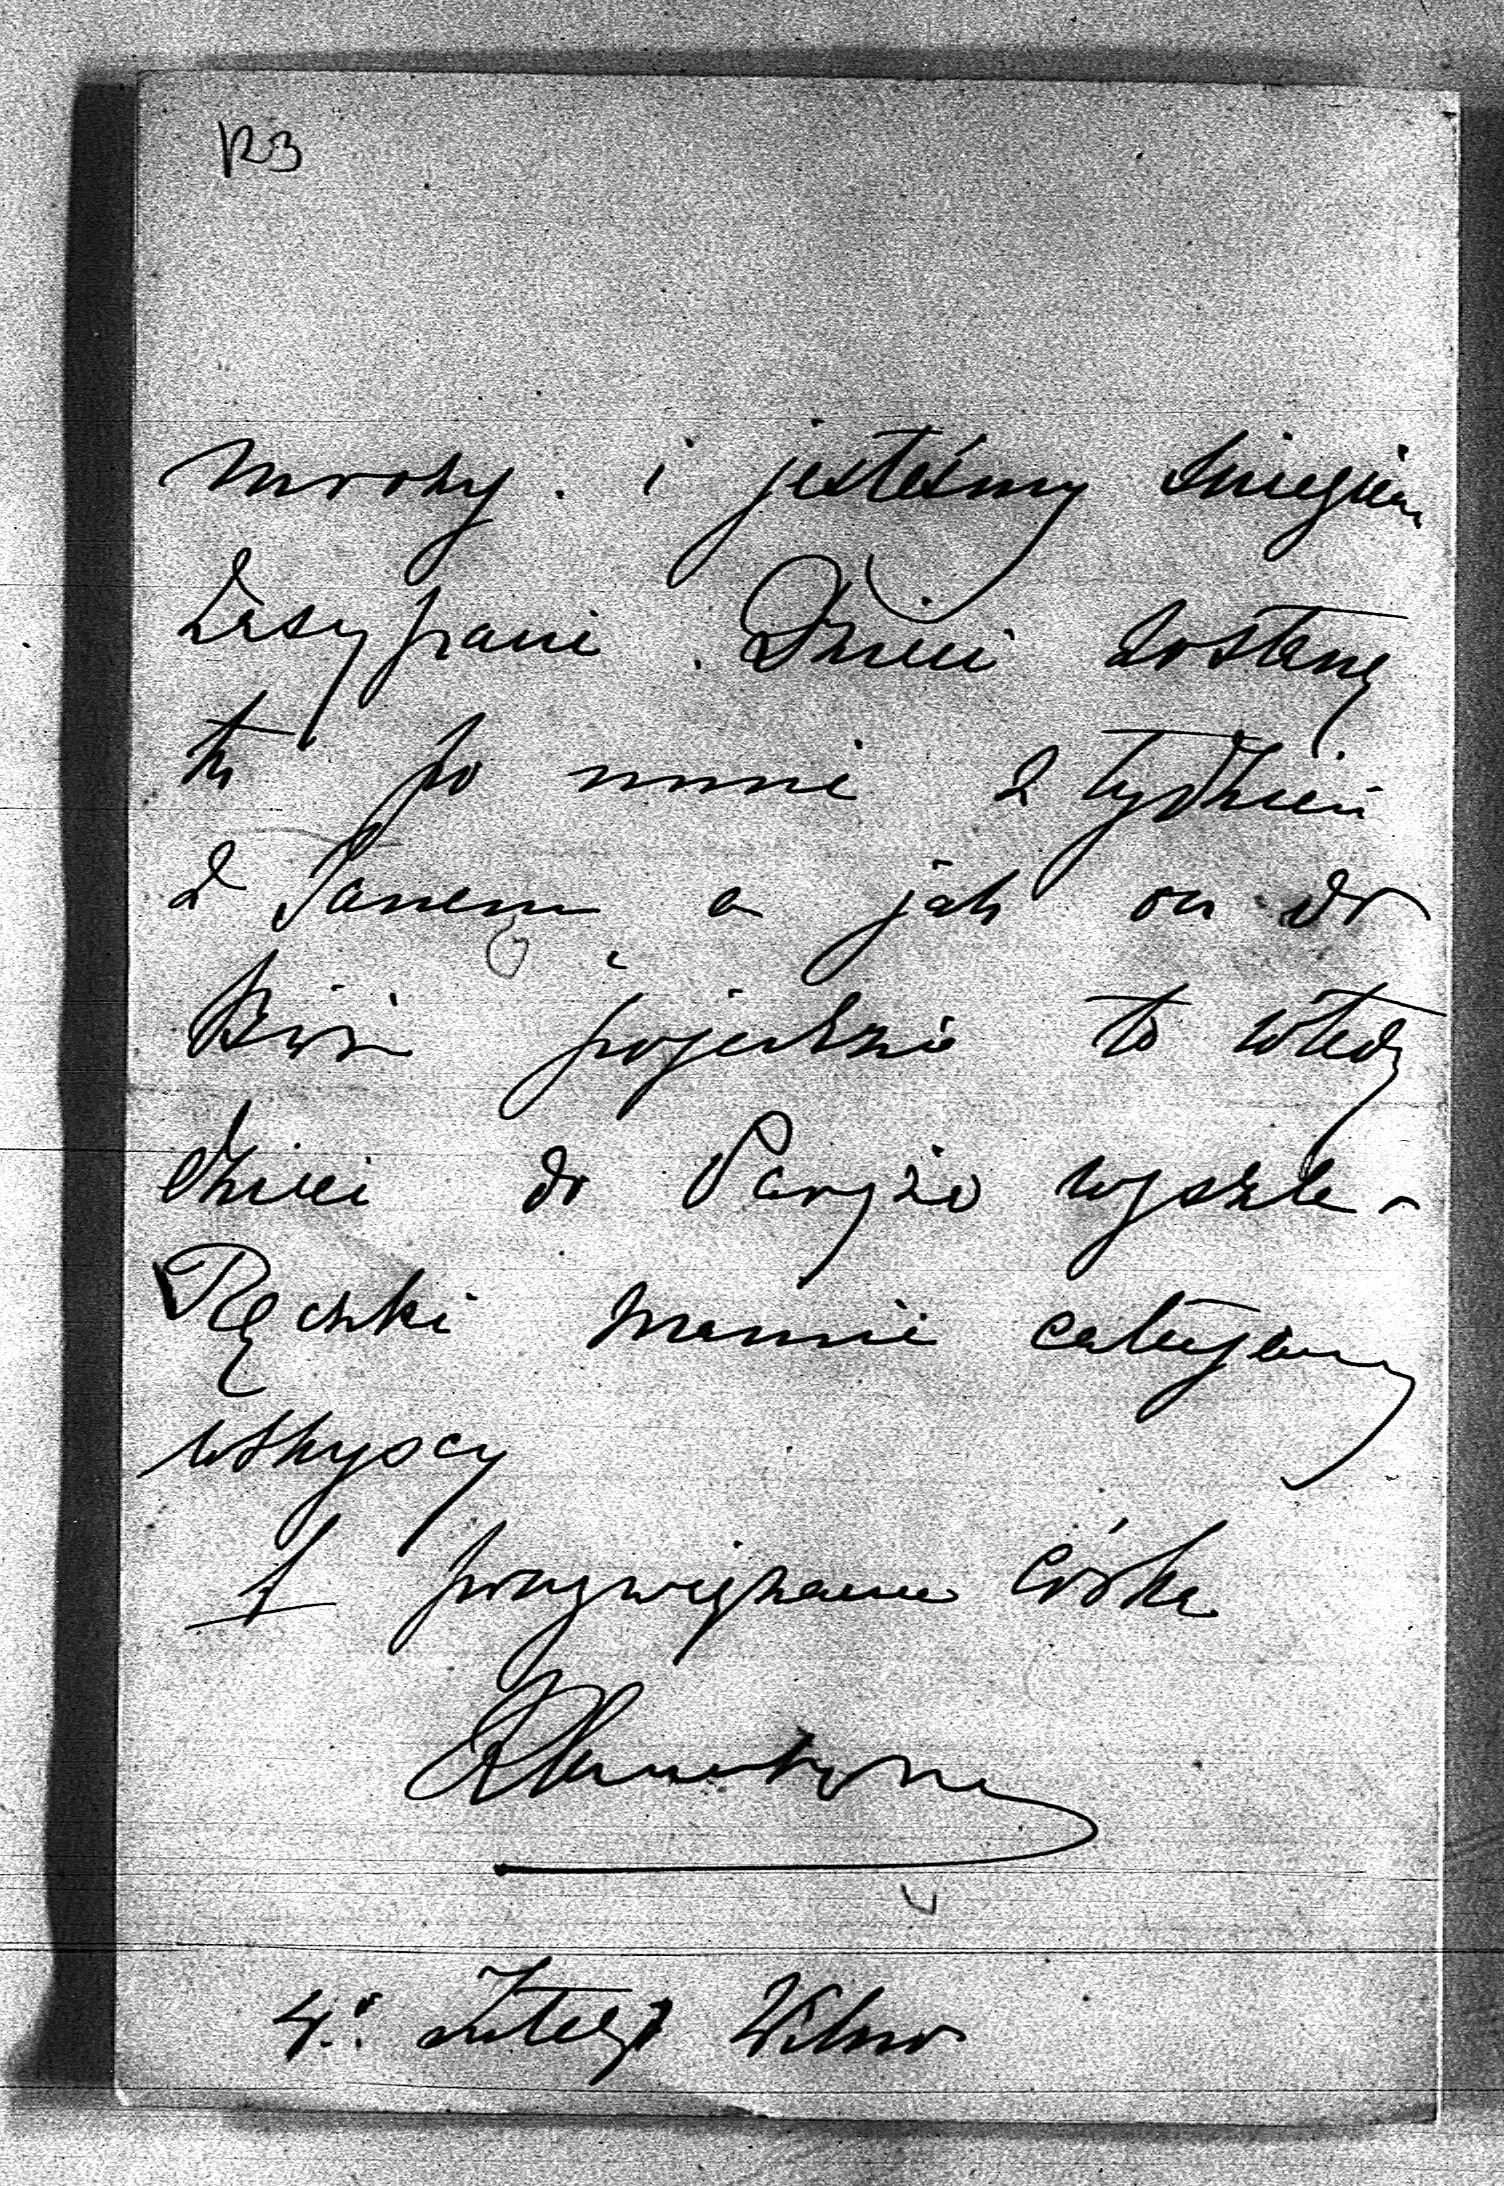 123
mrozy. i jesteśmy śniegiem
zasypani. Dzieci zostaną
tu po mnie 2 tydzień
z Panem a jak on do
pojedzie to wtedy
dzieci do Paryża wyszle-
Rączki Mamie całujemy
wszyscy
I przywiązana córka
Klementyna
4. Lutego Wilno